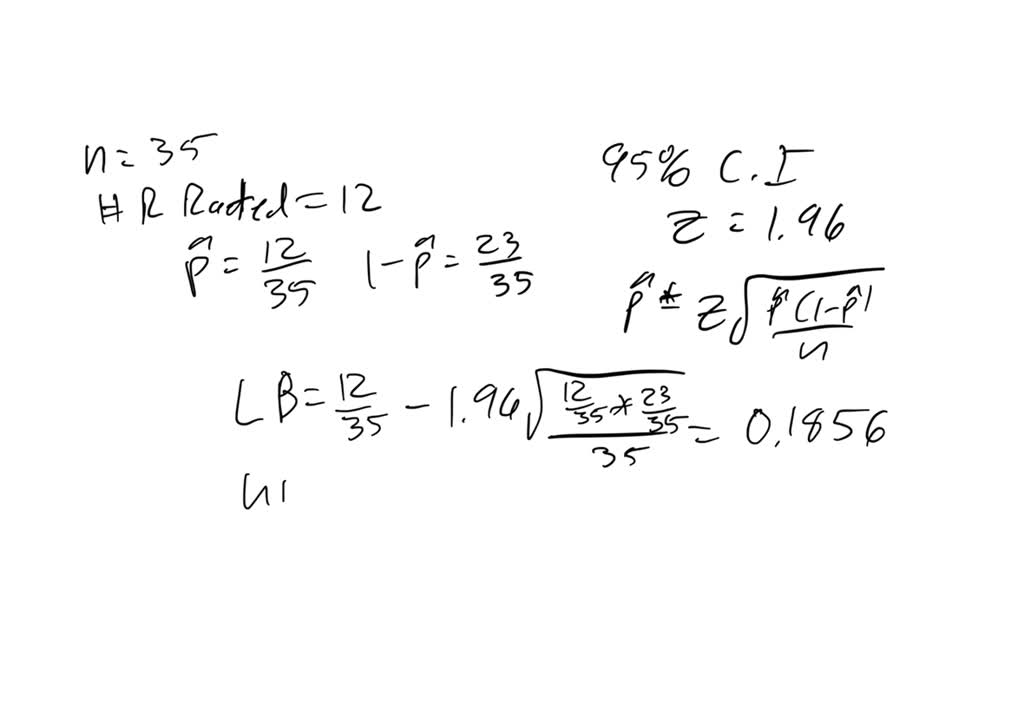 n = 35
# R Rated = 12
p̂ = 12/35 1 - p̂ = 23/35
95% C.I
z = 1.96
p̂ ± z√(p̂(1-p̂)/n)
LB = 12/35 - 1.96√(12/35 * 23/35 / 35) = 0.1856